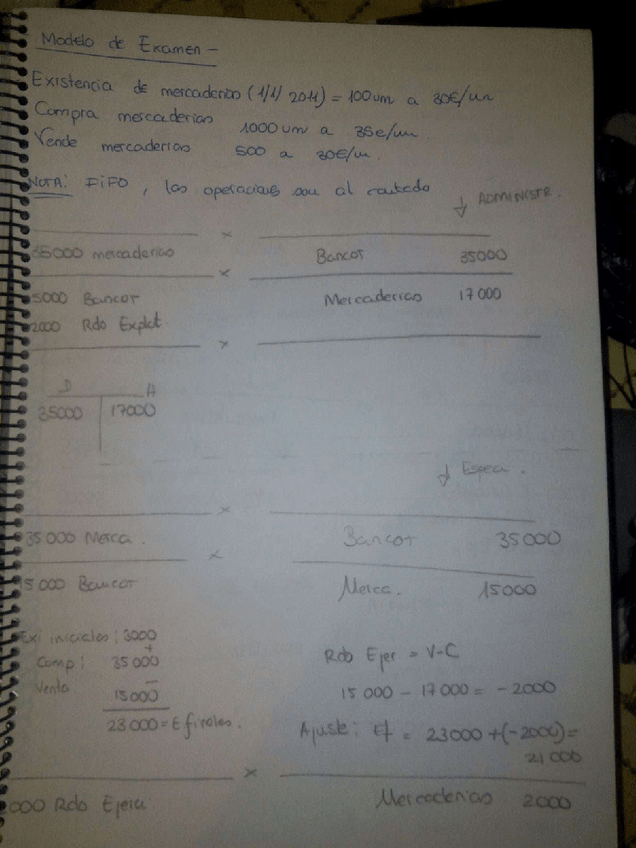 Modelo de Examen -
Existencia de mercaderias (1/1/2011) = 100 um a 30€/un
Compra mercaderias 1000 um a 35€/un
Vende mercaderias 500 a 30€/u.
NOTA: FiFO, las operaciones son al contado
↓ ADMINISTR.
x
35000 mercaderias Bancos 35000
x
5000 Bancos Mercaderias 17000
2000 Rdo Explot.
x
D A
35000 17000
↓ Espec.
x
35000 Merca. Bancos 35000
x
15000 Bancos Merca. 15000
Exi iniciales: 3000
+
Comp: 35000
-
Venta 15000
23000 = E finales.
Rdo Ejer = V-C
15000 - 17000 = -2000
Ajuste: Ef = 23000 + (-2000) =
21000
x
000 Rdo Ejerci Mercaderias 2000